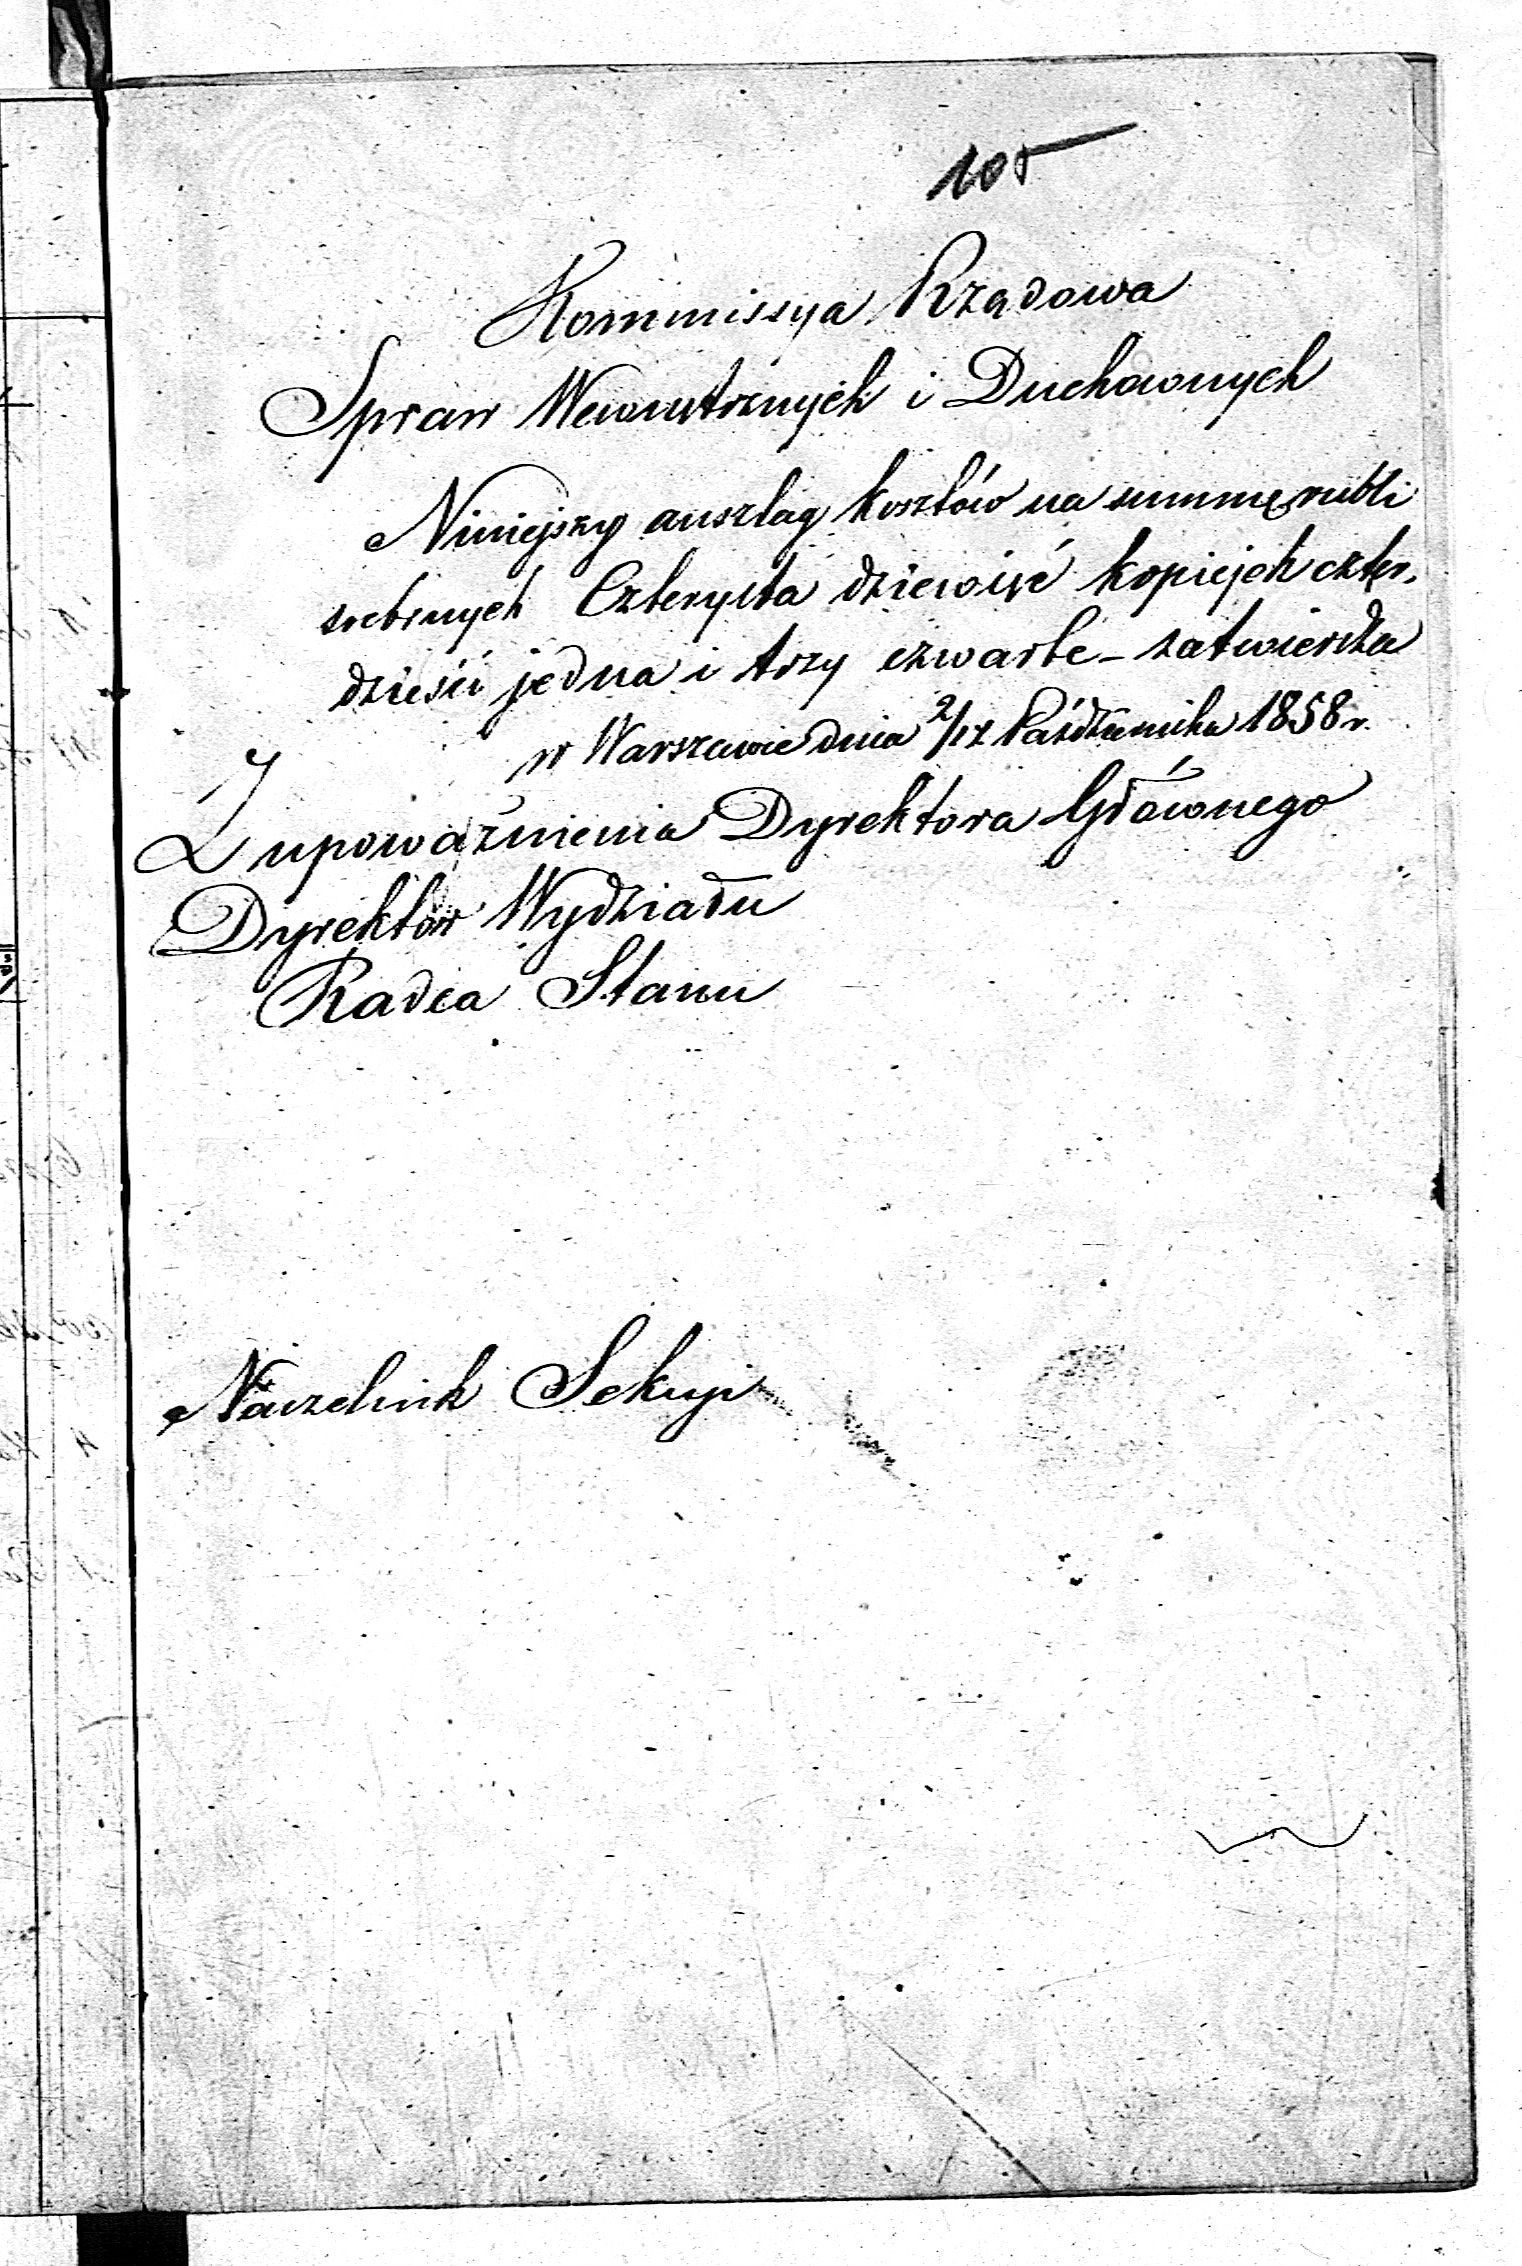 105
Kommissya Rządowa
Spraw Wewnętrznych i Duchownych
Niniejszy anszlag kosztów na summę rubli
srebrnych Czterysta dziewięć kopiejek czter,
dzieści jedna i trzy czwarte – zatwierdza
w Warszawie dnia 2/14 Października 1858 r.
Z upoważnienia Dyrektora Głównego
Dyrektor Wydziału
Radca Stanu
Naczelnik Sekcyi